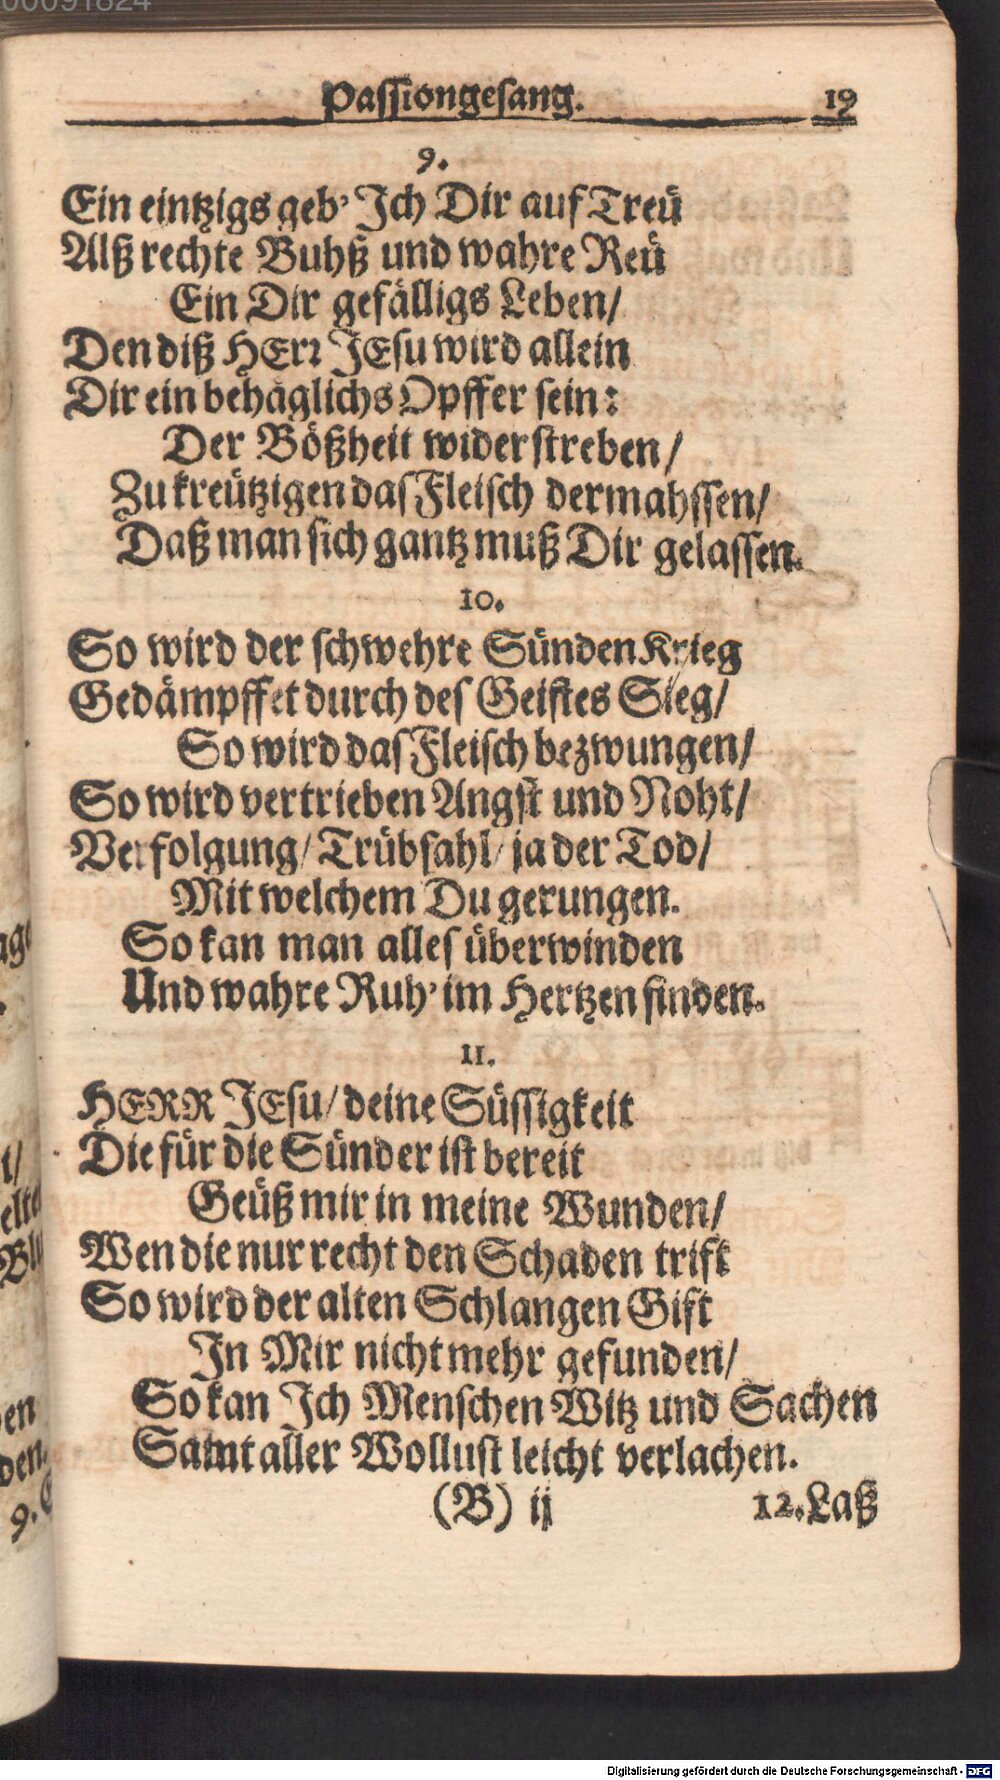 00091824
Passiongesang. 19
9.
Ein eintzigs geb' Ich Dir auf Treü
Alß rechte Buhß und wahre Reü
Ein Dir gefälligs Leben/
Den diß HErr JEsu wird allein
Dir ein behäglichs Opffer sein:
Der Bößheit widerstreben/
Zu kreützigen das Fleisch dermahssen/
Daß man sich gantz muß Dir gelassen.
10.
So wird der schwehre Sünden Krieg
Gedämpffet durch des Geistes Sieg/
So wird das Fleisch bezwungen/
So wird vertrieben Angst und Noht/
Verfolgung/ Trübsahl/ ja der Tod/
Mit welchem Du gerungen.
So kan man alles überwinden
Und wahre Ruh' im Hertzen finden.
11.
HERR JEsu/ deine Süssigkeit
Die für die Sünder ist bereit
Geüß mir in meine Wunden/
Wen die nur recht den Schaden trift
So wird der alten Schlangen Gift
In Mir nicht mehr gefunden/
So kan Ich Menschen Witz und Sachen
Samt aller Wollust leicht verlachen.
(B) ij 12. Laß
Digitalisierung gefördert durch die Deutsche Forschungsgemeinschaft - DFG